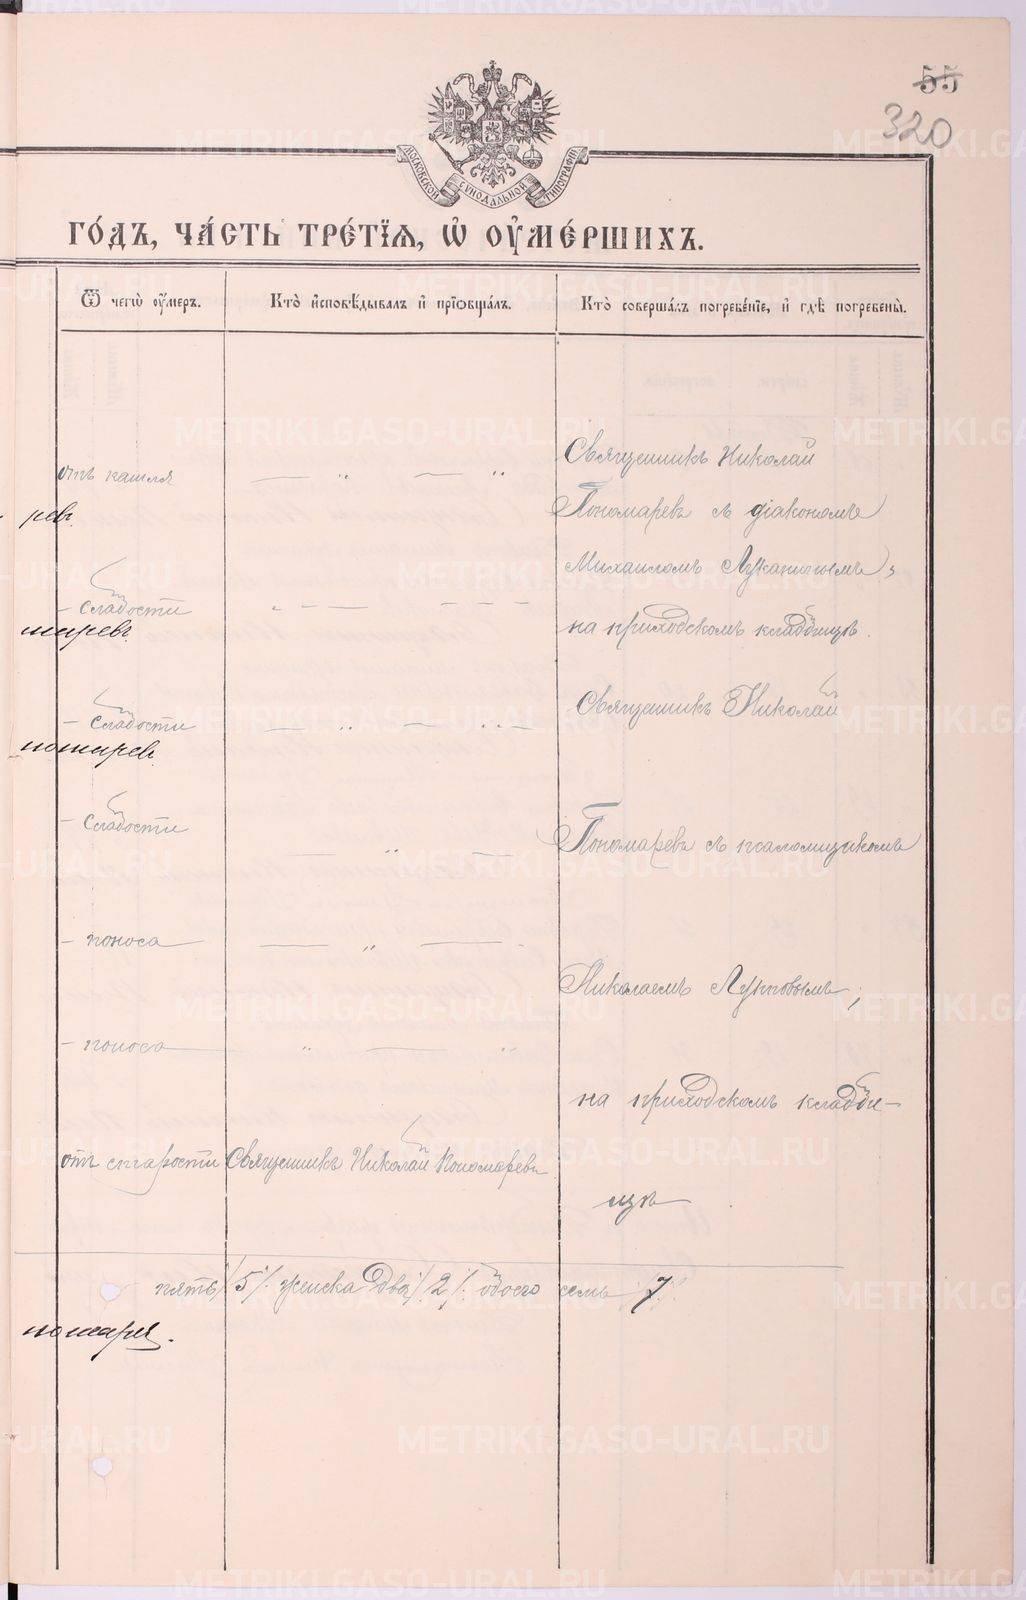 55
320
МОСКОВСКОЙ СѴНОДАЛЬНОЙ ТИПОГРАФІИ
ГО́ДЪ, ЧА́СТЬ ТРЕ́ТІЯ, Ѡ҆ ОУ҆МЕ́РШИХЪ.
Ѿ чегѡ̀ оу҆́меръ.
Кто̀ и҆сповѣ́дывалъ и҆ прїѡбща́лъ.
Кто̀ соверша́лъ погребе́нїе, и҆ гдѣ̀ погребены̀.
отъ кашля
— „ — „
Священникъ Николай
Пономаревъ съ діакономъ
ревъ.
Михаиломъ Лукинымъ,
на приходскомъ кладбищѣ.
— слабости
маревъ.
— слабости
Священникъ Николай
номаревъ.
— слабости
Пономаревъ съ псаломщикомъ
— поноса
— „ —
Николаемъ
— поноса
„ — „
на приходскомъ кладби-
отъ старости
Священникъ Николай Пономаревъ
щѣ
пять /5/. женска два /2/. обоего семь /7/
номаревъ.
METRIKI.GASO-URAL.RU